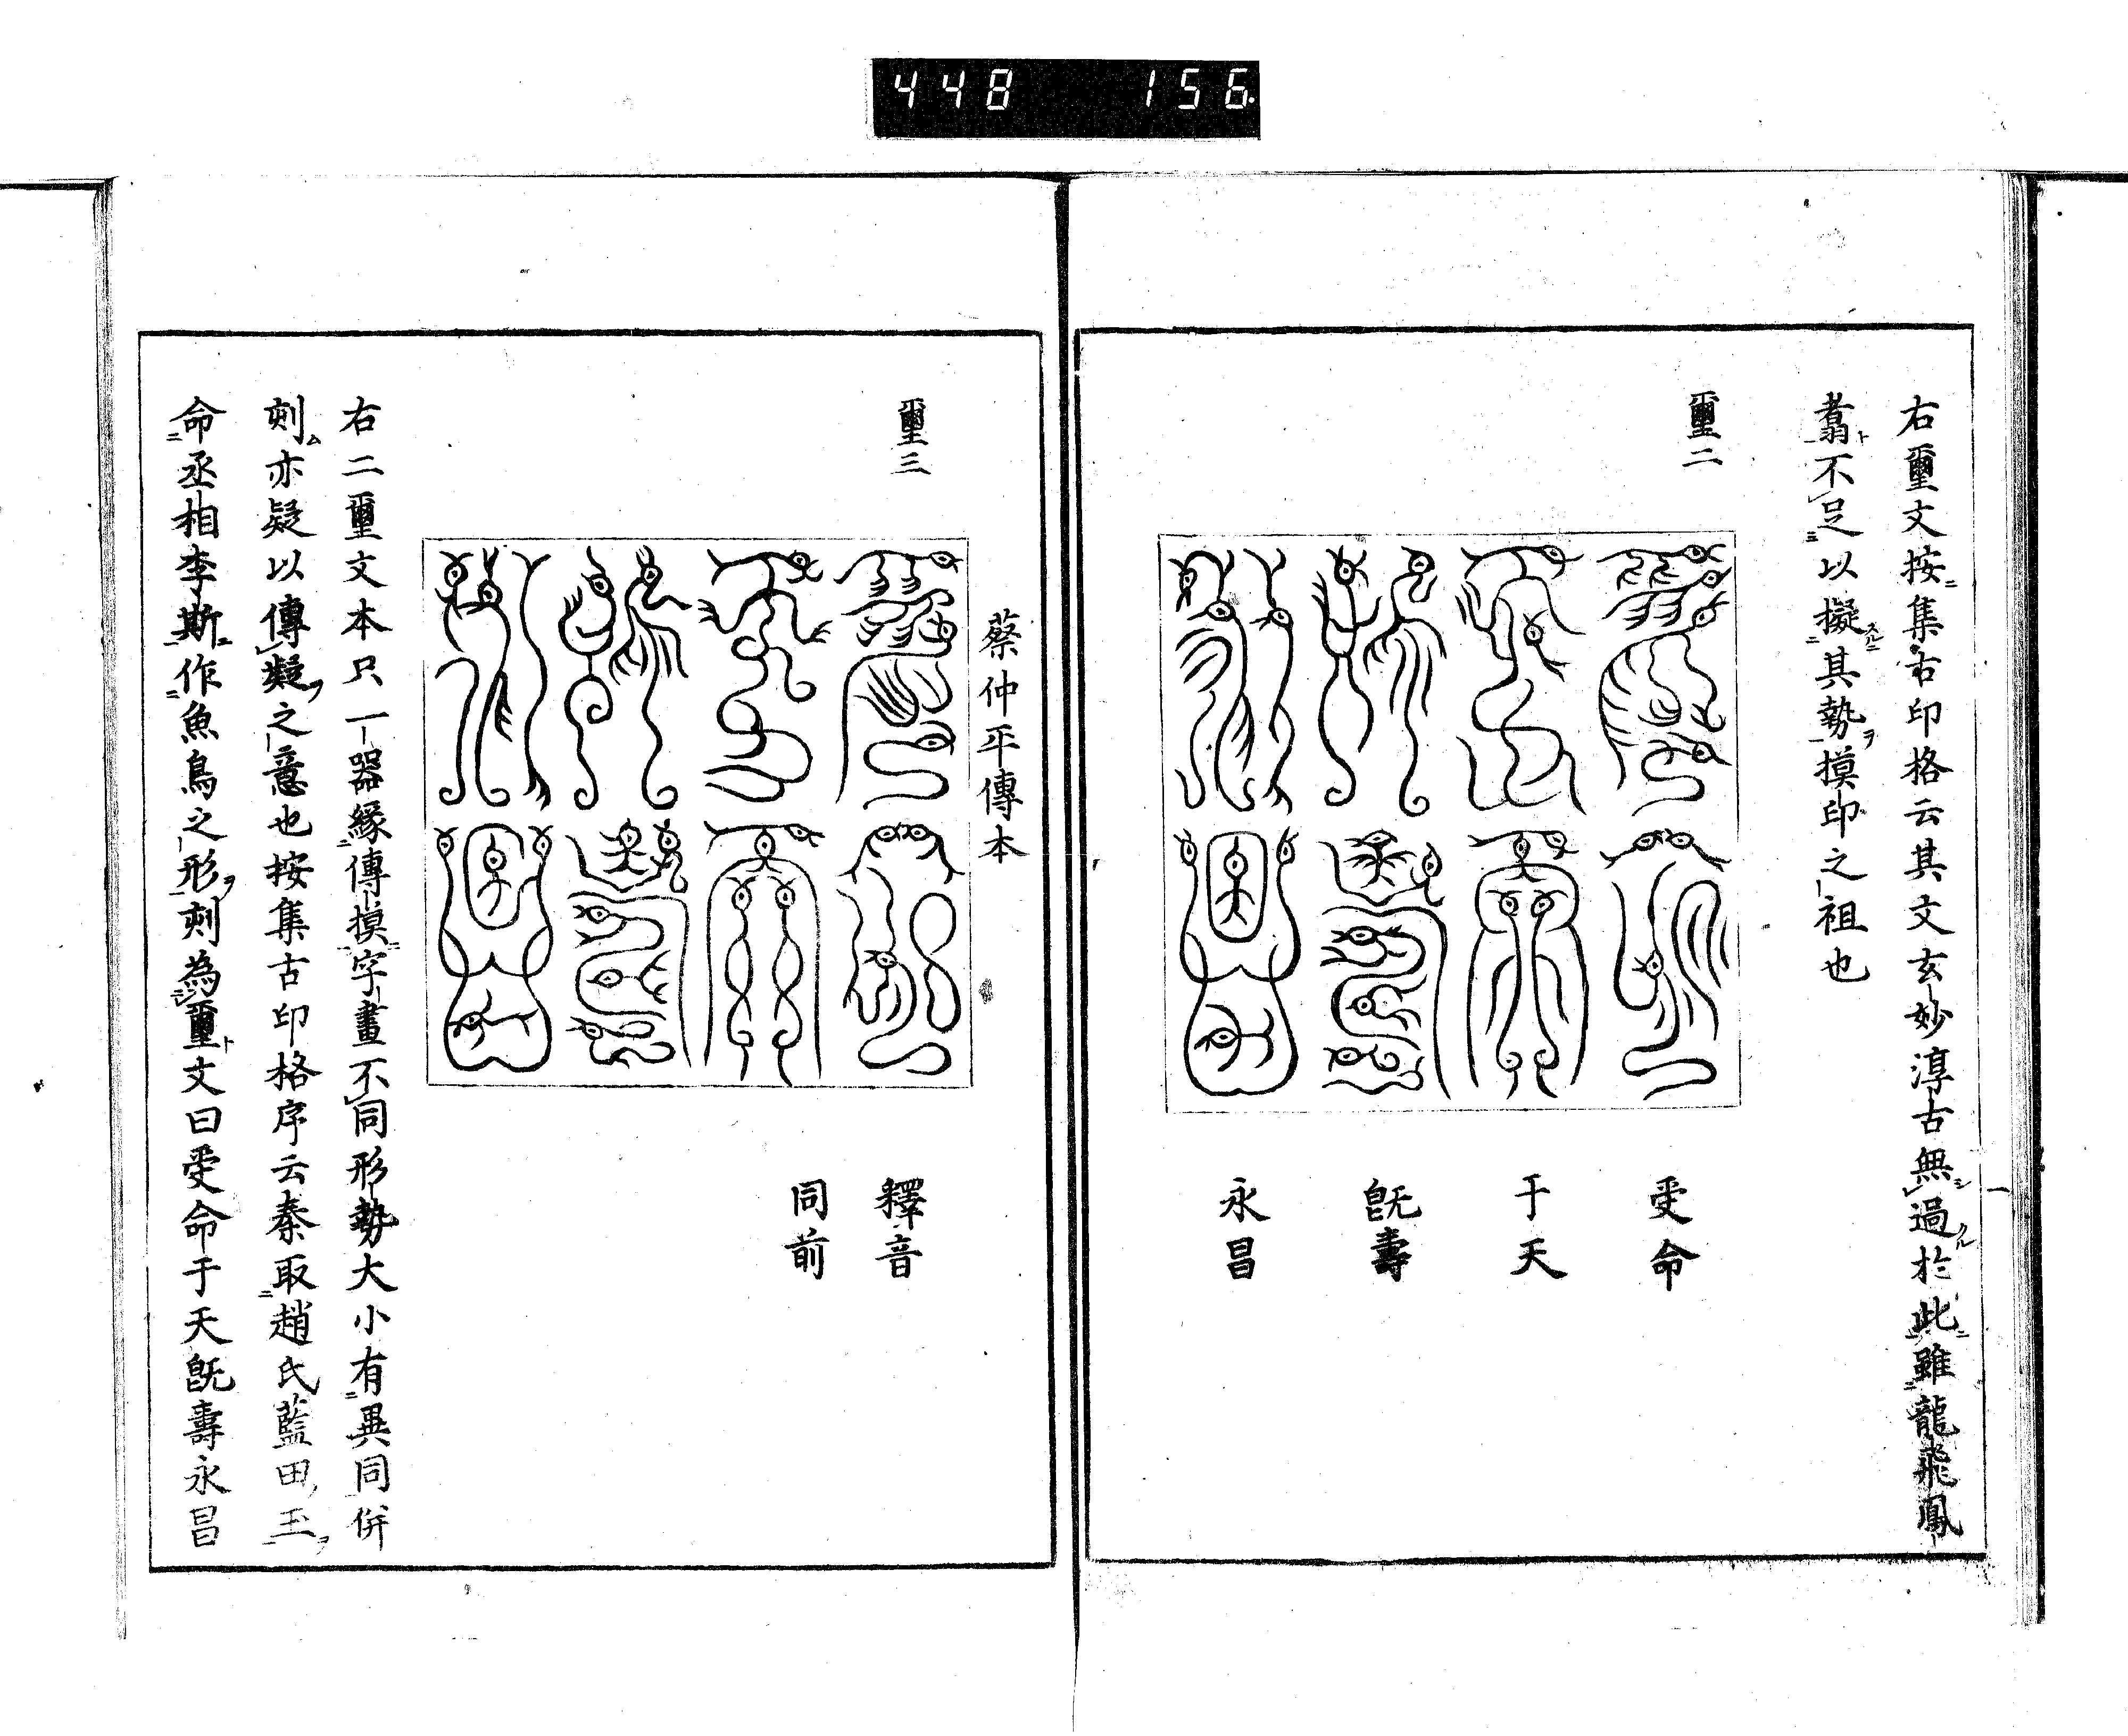 448 156
右璽文按集古印格云其文玄妙淳古無過於此雖龍飛鳳
翥不足以擬其勢摸印之祖也
璽二
受命
于天
既壽
永昌
蔡仲平傳本
璽三
釋音
同前
右二璽文本只一器緣傳摸字畫不同形勢大小有異同併
刻亦疑以傳疑之意也按集古印格序云秦取趙氏藍田玉
命丞相李斯作魚鳥之形刻為璽文曰受命于天既壽永昌